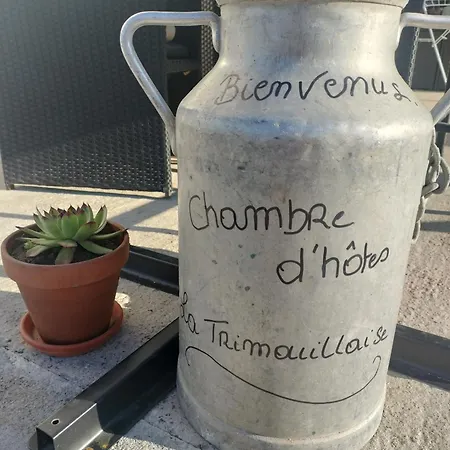 Bienvenus
Chambre
d'hôtes
La Trimouillaise